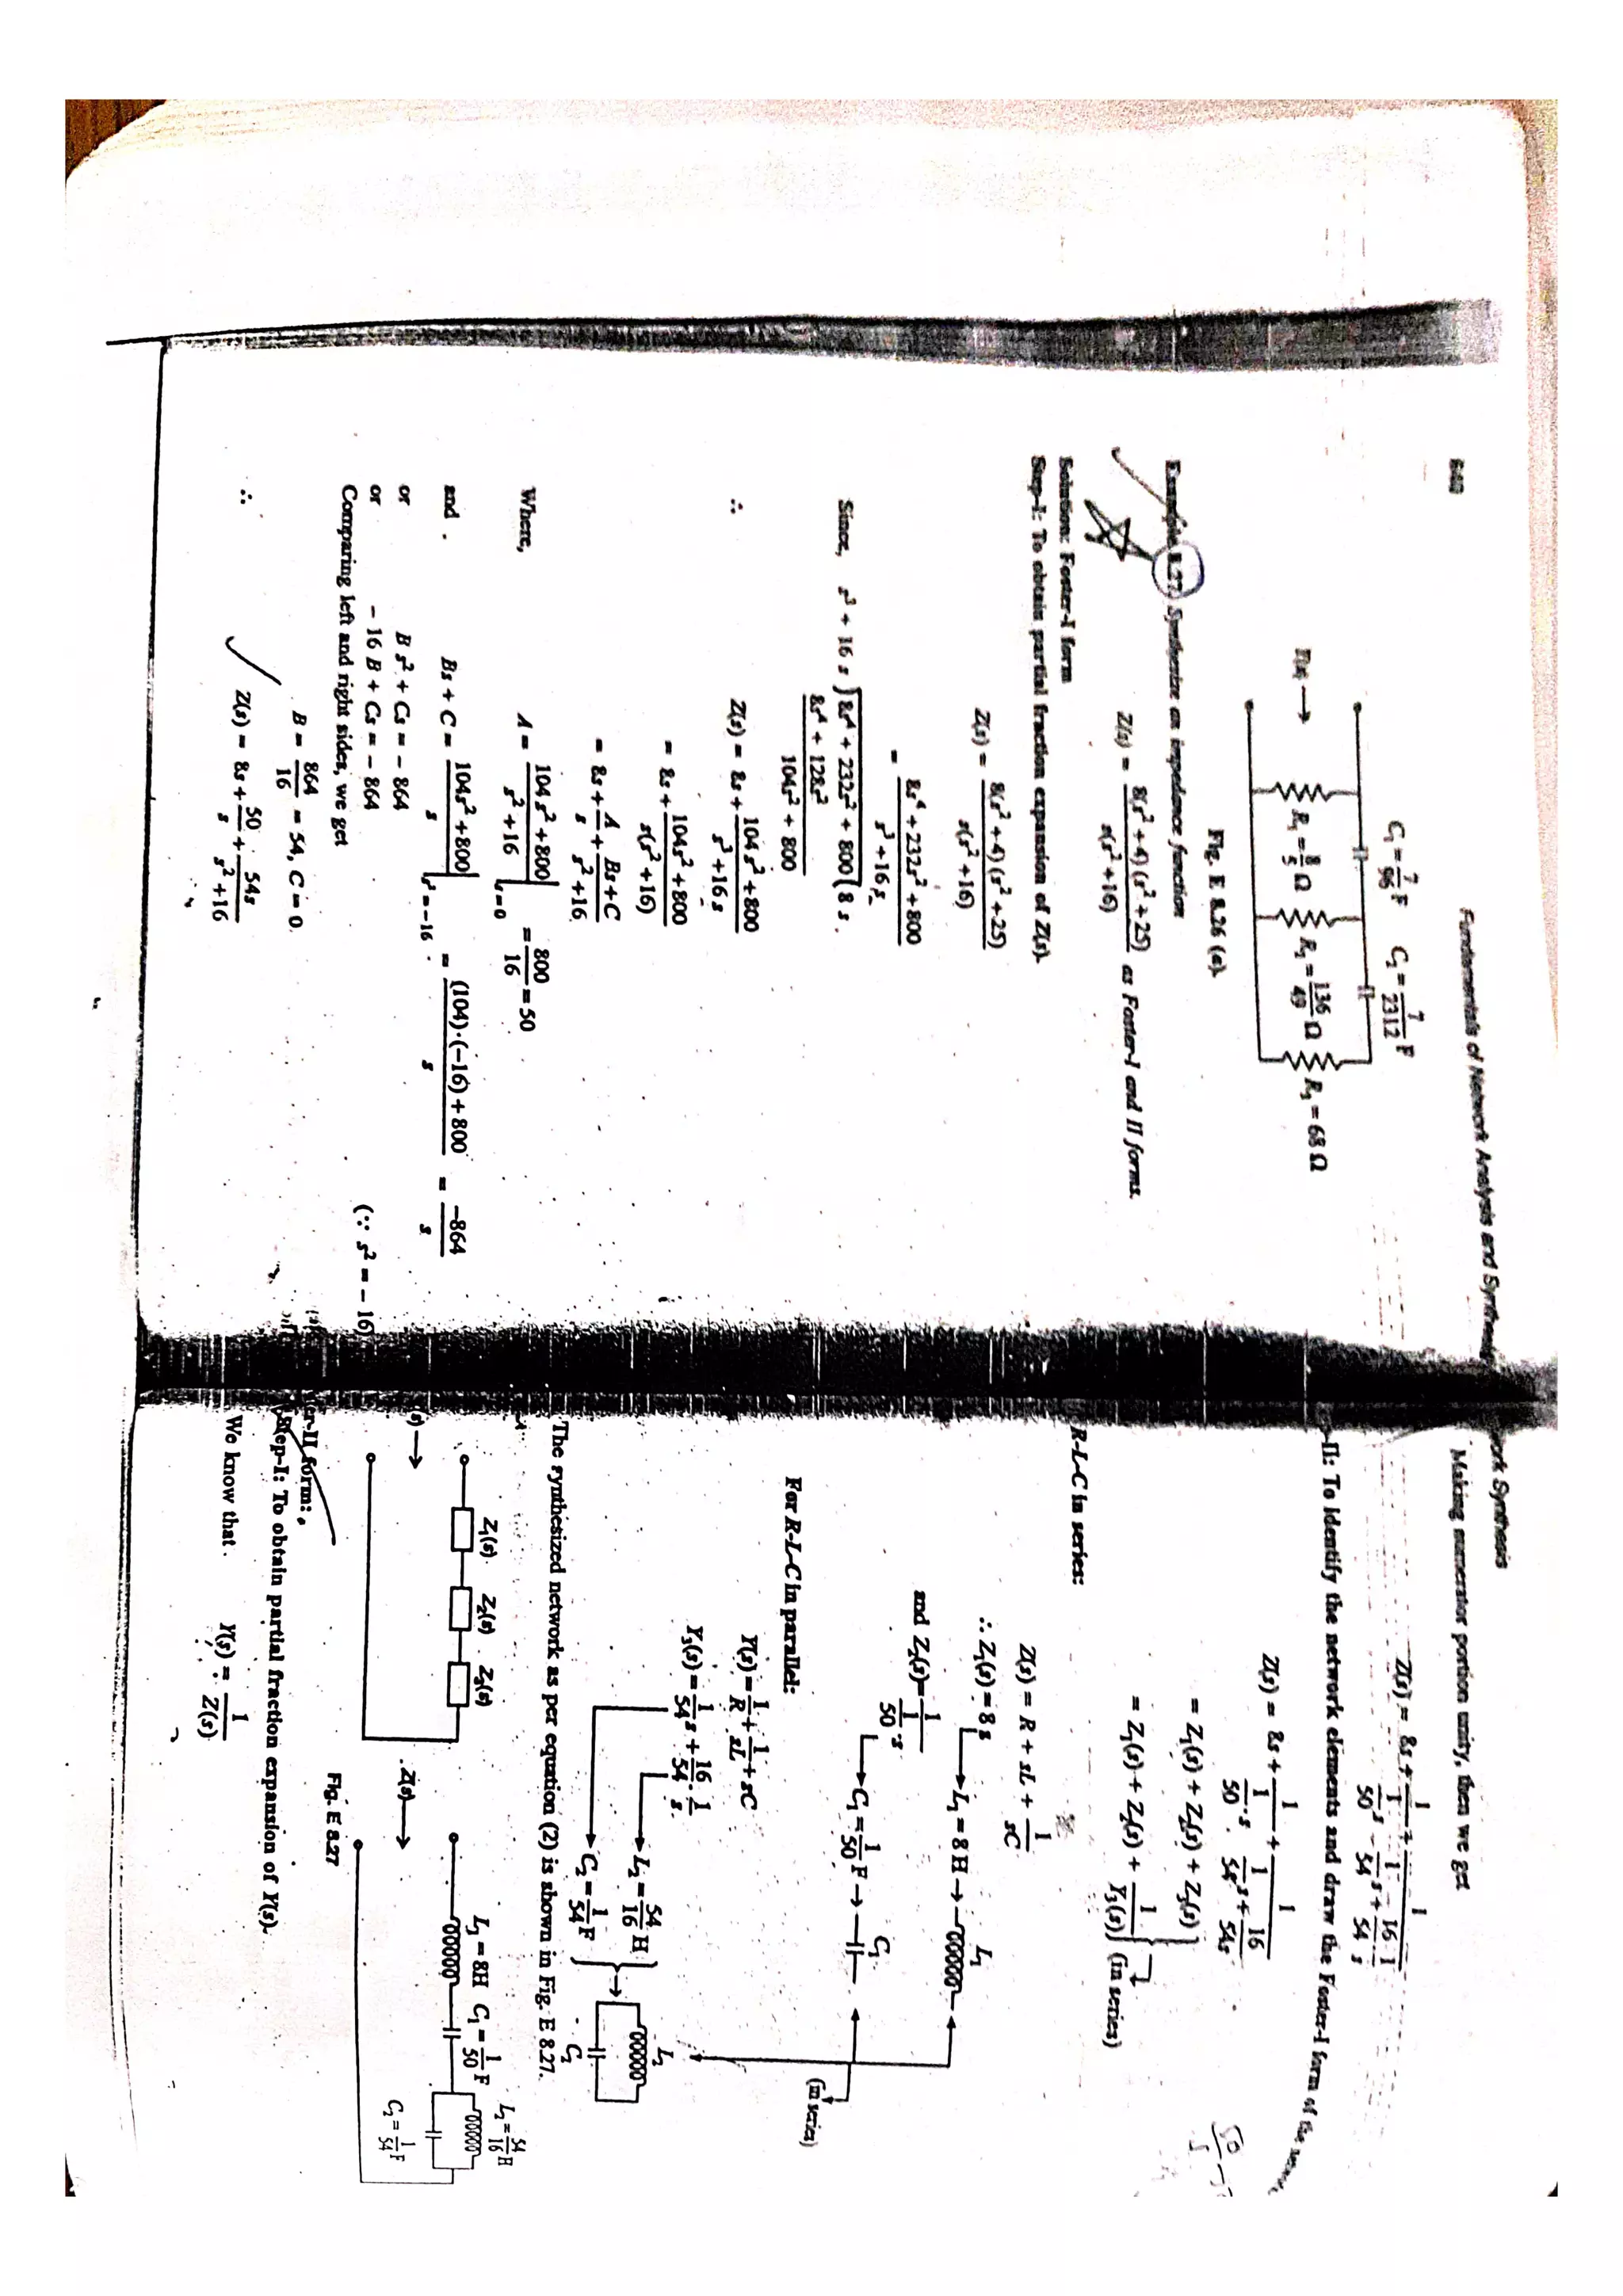 640
Fundamentals of Network Analysis and
C₁ = 7/96 F C₂ = 7/2312 F
R₁ = 8/5 Ω R₂ = 136/49 Ω R₃ = 68 Ω
Fig. E 8.26 (c).
Example 8.27. Synthesize an impedance function
Z(s) = 8(s² + 4)(s² + 25) / s(s² + 16) as Foster-I and II forms.
Solution: Foster-I form
Step-I: To obtain partial fraction expansion of Z(s).
Z(s) = 8(s² + 4)(s² + 25) / s(s² + 16)
= 8s⁴ + 232s² + 800 / s³ + 16s
Since, s³ + 16 s ) 8s⁴ + 232s² + 800 ( 8 s
8s⁴ + 128s²
104s² + 800
∴ Z(s) = 8s + 104 s² + 800 / s³ + 16 s
= 8s + 104s² + 800 / s(s² + 16)
= 8s + A/s + Bs + C / s² + 16
Where, A = 104 s² + 800 / s² + 16 |s = 0 = 800/16 = 50
and Bs + C = 104s² + 800 / s |s² = −16 = (104)·(−16) + 800 / s = −864 / s
or B s² + Cs = − 864
or − 16 B + Cs = − 864 (∵ s² = − 16)
Comparing left and right sides, we get
B = 864/16 = 54, C = 0
∴ Z(s) = 8s + 50/s + 54s / s² + 16
ork Synthesis
Making numerator portion unity, then we get
Z(s) = 8s + 1 / 1/50 s + 1 / 1/54 s + 16/54 · 1/s
-II: To identify the network elements and draw the Foster-I form of the
Z(s) = 8s + 1 / 1/50 · s + 1 / 1/54 · s + 16/54s
= Z₁(s) + Z₂(s) + Z₃(s)
= Z₁(s) + Z₂(s) + 1/Y₃(s) (in series)
R-L-C in series:
Z(s) = R + sL + 1/sC
∴ Z₁(s) = 8 s
L₁ = 8 H → L₁
and Z₂(s) = 1 / 1/50 · s
C₁ = 1/50 F → C₁
(in series)
For R-L-C in parallel:
Y(s) = 1/R + 1/sL + sC
Y₃(s) = 1/54 s + 16/54 · 1/s
L₂ = 54/16 H
C₂ = 1/54 F
L₂
C₂
The synthesized network as per equation (2) is shown in Fig. E 8.27.
(s) → Z₁(s) Z₂(s) Z₃(s)
Z(s) → L₁ = 8H C₁ = 1/50 F L₂ = 54/16 H
C₂ = 1/54 F
Fig. E 8.27
er-II form:
Step-I: To obtain partial fraction expansion of Y(s).
We know that
Y(s) = 1/Z(s)